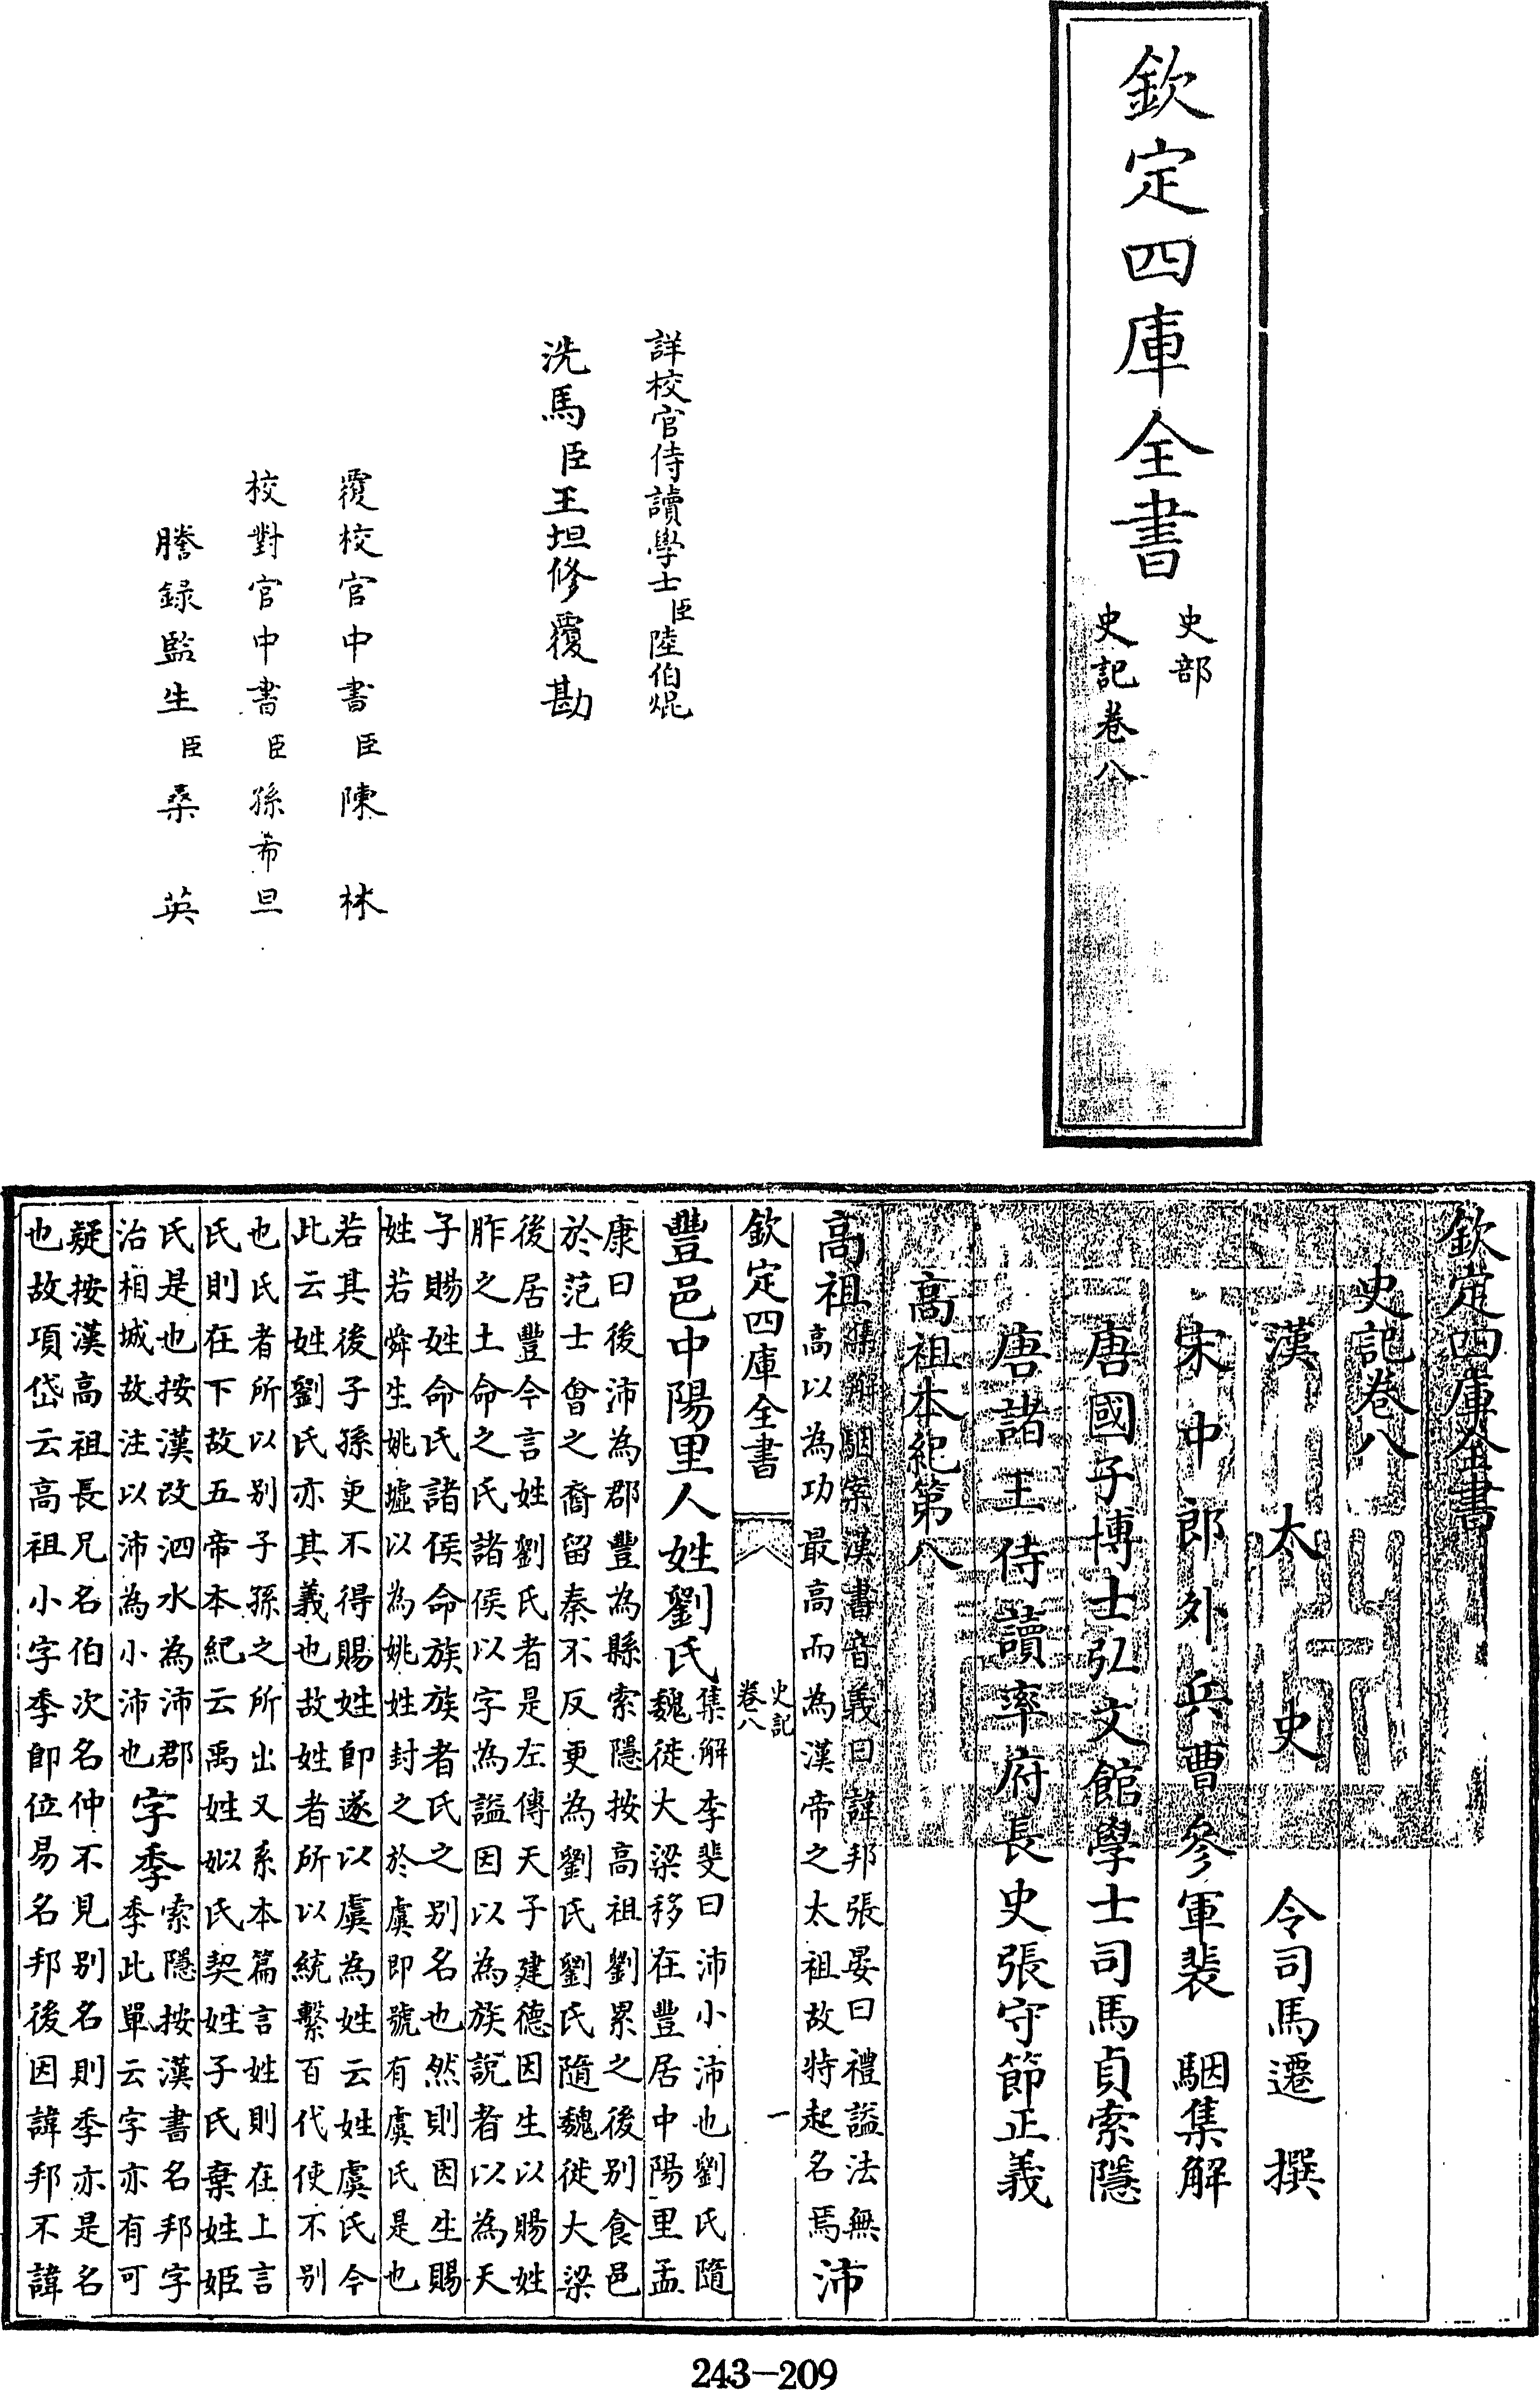 欽定四庫全書
史部
史記卷八
詳校官侍讀學士臣陸伯焜
洗馬臣王坦修覆勘
覆校官中書臣陳林
校對官中書臣孫希旦
謄錄監生臣桑英
欽定四庫全書
史記卷八
漢太史令司馬遷撰
宋中郎外兵曹參軍裴駰集解
唐國子博士弘文館學士司馬貞索隱
唐諸王侍讀率府長史張守節正義
高祖本紀第八
高祖集解駰案漢書音義曰諱邦張晏曰禮諡法無
高以為功最高而為漢帝之太祖故特起名焉沛
欽定四庫全書 史記
卷八 一
豐邑中陽里人姓劉氏集解李斐曰沛小沛也劉氏隨
魏徙大梁移在豐居中陽里孟
康曰後沛為郡豐為縣索隱按高祖劉累之後別食邑
於范士會之裔留秦不反更為劉氏劉氏隨魏徙大梁
後居豐今言姓劉氏者是左傳天子建德因生以賜姓
胙之土命之氏諸侯以字為諡因以為族說者以為天
子賜姓命氏諸侯命族族者氏之別名也然則因生賜
姓若舜生姚墟以為姚姓封之於虞即號有虞氏是也
若其後子孫更不得賜姓即遂以虞為姓云姓虞氏今
此云姓劉氏亦其義也故姓者所以統繫百代使不別
也氏者所以別子孫之所出又系本篇言姓則在上言
氏則在下故五帝本紀云禹姓姒氏契姓子氏棄姓姬
氏是也按漢改泗水為沛郡
治相城故注以沛為小沛也字季索隱按漢書名邦字
季此單云字亦有可
疑按漢高祖長兄名伯次名仲不見別名則季亦是名
也故項岱云高祖小字季即位易名邦後因諱邦不諱
243-209